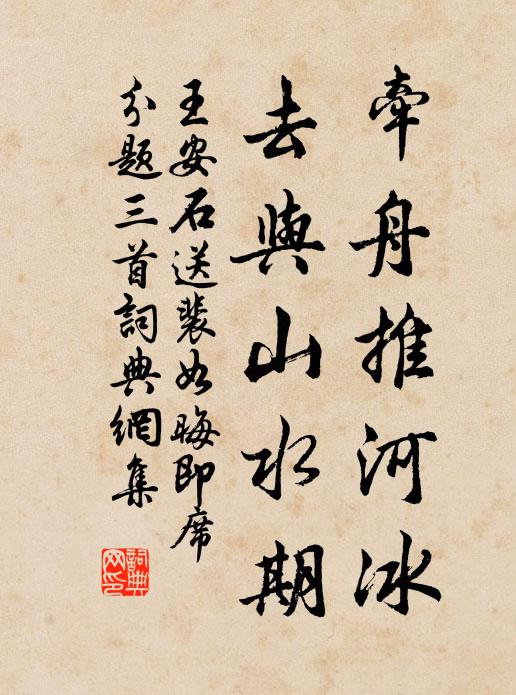 牽舟推河冰
去與山水期
王安石送裴如晦即席
分題三首詞典網集
詞典
网印